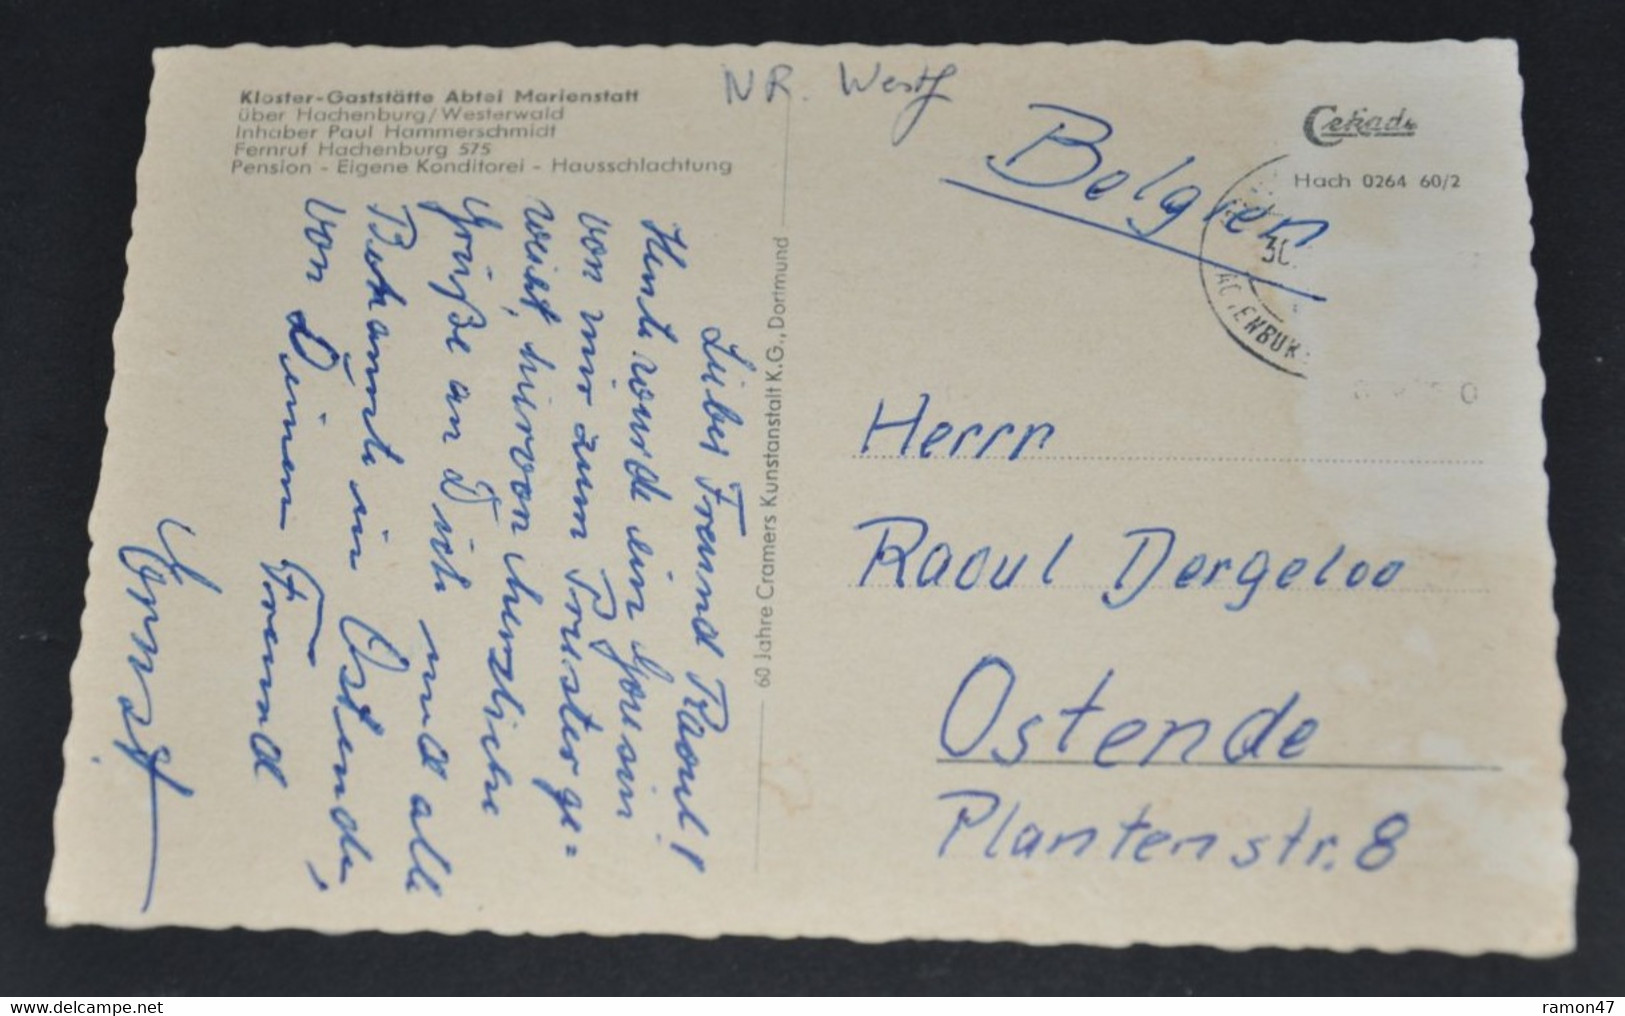 Kloster-Gaststätte Abtei Marienstatt
über Hachenburg/Westerwald
Inhaber Paul Hammerschmidt
Fernruf Hachenburg 575
Pension - Eigene Konditorei - Hausschlachtung
NR. Westf
Cekade
Hach 0264 60/2
Belgien
30.
Lieber Freund Raoul!
Heute wurde ein Cousin
von mir zum Priester ge=
weiht, hiervon herzliche
Grüße an Dich und alle
Bekannte in Ostende,
von Deinem Freund
Ernst
60 Jahre Cramers Kunstanstalt K.G., Dortmund
Herrn
Raoul Dergeloo
Ostende
Plantenstr. 8
ramon47